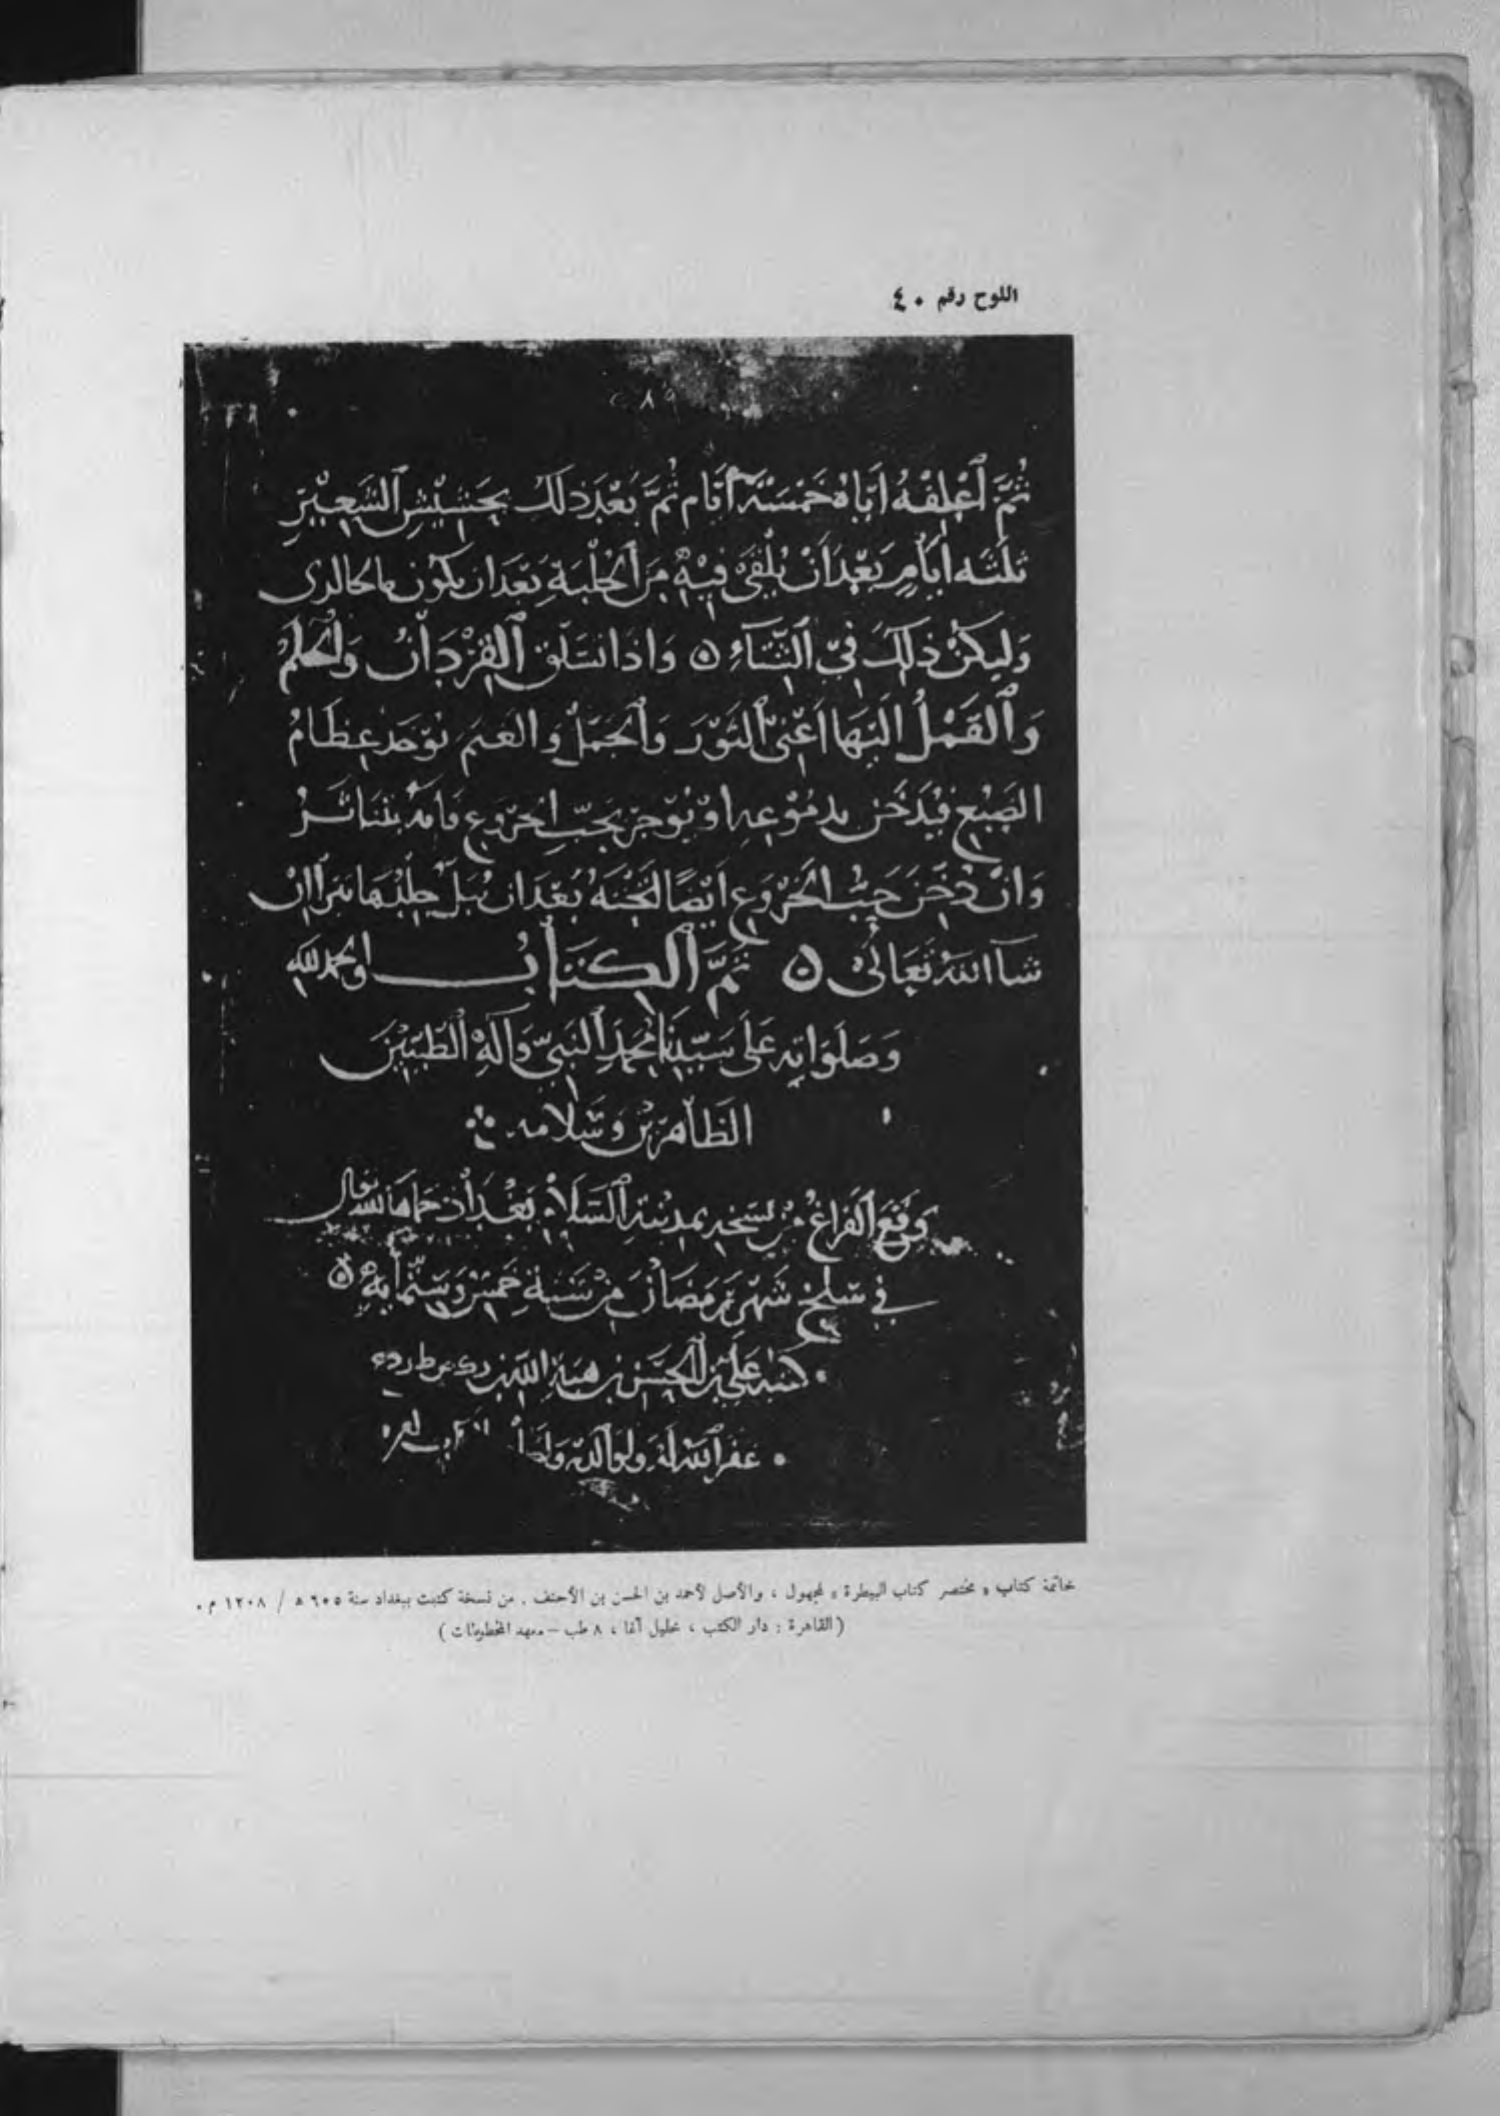 اللوح رقم ٤٠
٢٨٩
ثُمَّ اَعْلِفْهُ اِيَّاهُ خَمْسَتَة اَيَّام ثُمَّ بَعْدَ ذلك بِحَشيْشِ الشَّعِيْرِ
ثلثه ايَّامٍ بَعْدَ اَنْ يُلْقَى فِيْهِ مِنَ الحُلْبَةِ بَعْدَ ان يكون
وَليَكُنْ ذلِكَ فيْ الشِّتَآءِ ٥ وَاذَا تسَلّق القِرْدَانُ وَالْحَلَمُ
وَالقَمْلُ اليْهَا اَعْنِى الثَوْرَ وَالجَمَلَ وَالغنَم يُوْخذ عِظَامُ
الضبُعِ فيُدَخّن به اوْ بحَبّ الخرْوَعِ فانه يتنَاثَرُ
وَانْ دُخّنَ حَبُّ الخَرْوَعِ اَيْضًا بَعْدَ ان
شآ اللهُ تَعَالىْ ٥ تُمَّ الكِتَابُ والحمد لله
وَصَلَوَاته عَلَى سَيّدِنَا مُحَمّدٍ النَبِيّ وَآلِهِ الطَّيّبِيْنَ
الطَاهِرِيْنَ وَسَلامه
وَقَعَ الفَرَاغُ مِنْ نسخه بمدينَةِ السَّلَامِ بَغْدَاذ حماها الله تعالى
في سَلخِ شَهْرِ رَمَضَانَ مِنْ سَنَةِ خمسٍ وَستّمايةٍ ٥
كتبه عَليّ بن الحسَن بن هبة الله
غفر الله له ولوالديه
خاتمة كتاب « مختصر كتاب البيطرة » لمجهول ، والأصل لأحمد بن الحسن بن الأحنف . من نسخة كتبت ببغداد سنة ٦٠٥ ه / ١٢٠٨ م .
( القاهرة : دار الكتب ، خليل آغا ، ٨ طب – معهد المخطوطات )